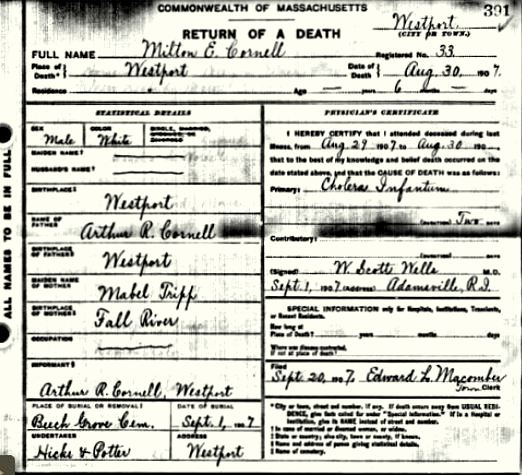 COMMONWEALTH OF MASSACHUSETTS
391
RETURN OF A DEATH
Westport
(CITY OR TOWN.)
FULL NAME Milton E. Cornell
Registered No. 33
Place of Death Westport
Date of Death Aug. 30, 1907.
Residence
Age — years 6 months — days
STATISTICAL DETAILS
SEX Male
COLOR White
SINGLE, MARRIED, WIDOWED OR DIVORCED
MAIDEN NAME
HUSBAND'S NAME
BIRTHPLACE Westport
NAME OF FATHER Arthur R. Cornell
BIRTHPLACE OF FATHER Westport
MAIDEN NAME OF MOTHER Mabel Tripp
BIRTHPLACE OF MOTHER Fall River
OCCUPATION
INFORMANT Arthur R. Cornell, Westport
PLACE OF BURIAL OR REMOVAL Beech Grove Cem.
DATE OF BURIAL Sept. 1, 1907
UNDERTAKER Hicks & Potter
ADDRESS Westport
ALL NAMES TO BE IN FULL
PHYSICIAN'S CERTIFICATE
I HEREBY CERTIFY that I attended deceased during last
illness, from Aug 29 1907, to Aug. 30 190
that to the best of my knowledge and belief death occurred on the
date stated above and that the CAUSE OF DEATH was as follows:
Primary: Cholera Infantum
(DURATION) Two DAYS
Contributory:
(DURATION) DAYS
(Signed) W. Scott Wells M.D.
Sept. 1, 1907 (Address) Adamsville, R.I.
SPECIAL INFORMATION only for Hospitals, Institutions, Transients,
or Recent Residents.
How long at
Place of Death? years months days
Where was disease contracted,
if not at place of death?
Filed
Sept. 20, 1907. Edward L. Macomber
Town Clerk
City or town, street and number, if any. If death occurs away from USUAL RESI-
DENCE, give facts called for under "Special Information." If in a Hospital or
Institution, give its NAME instead of street and number.
In case of married or divorced woman, or widow.
State or country; also city, town or county, if known.
Name and address of person giving statistical details.
Name of cemetery.